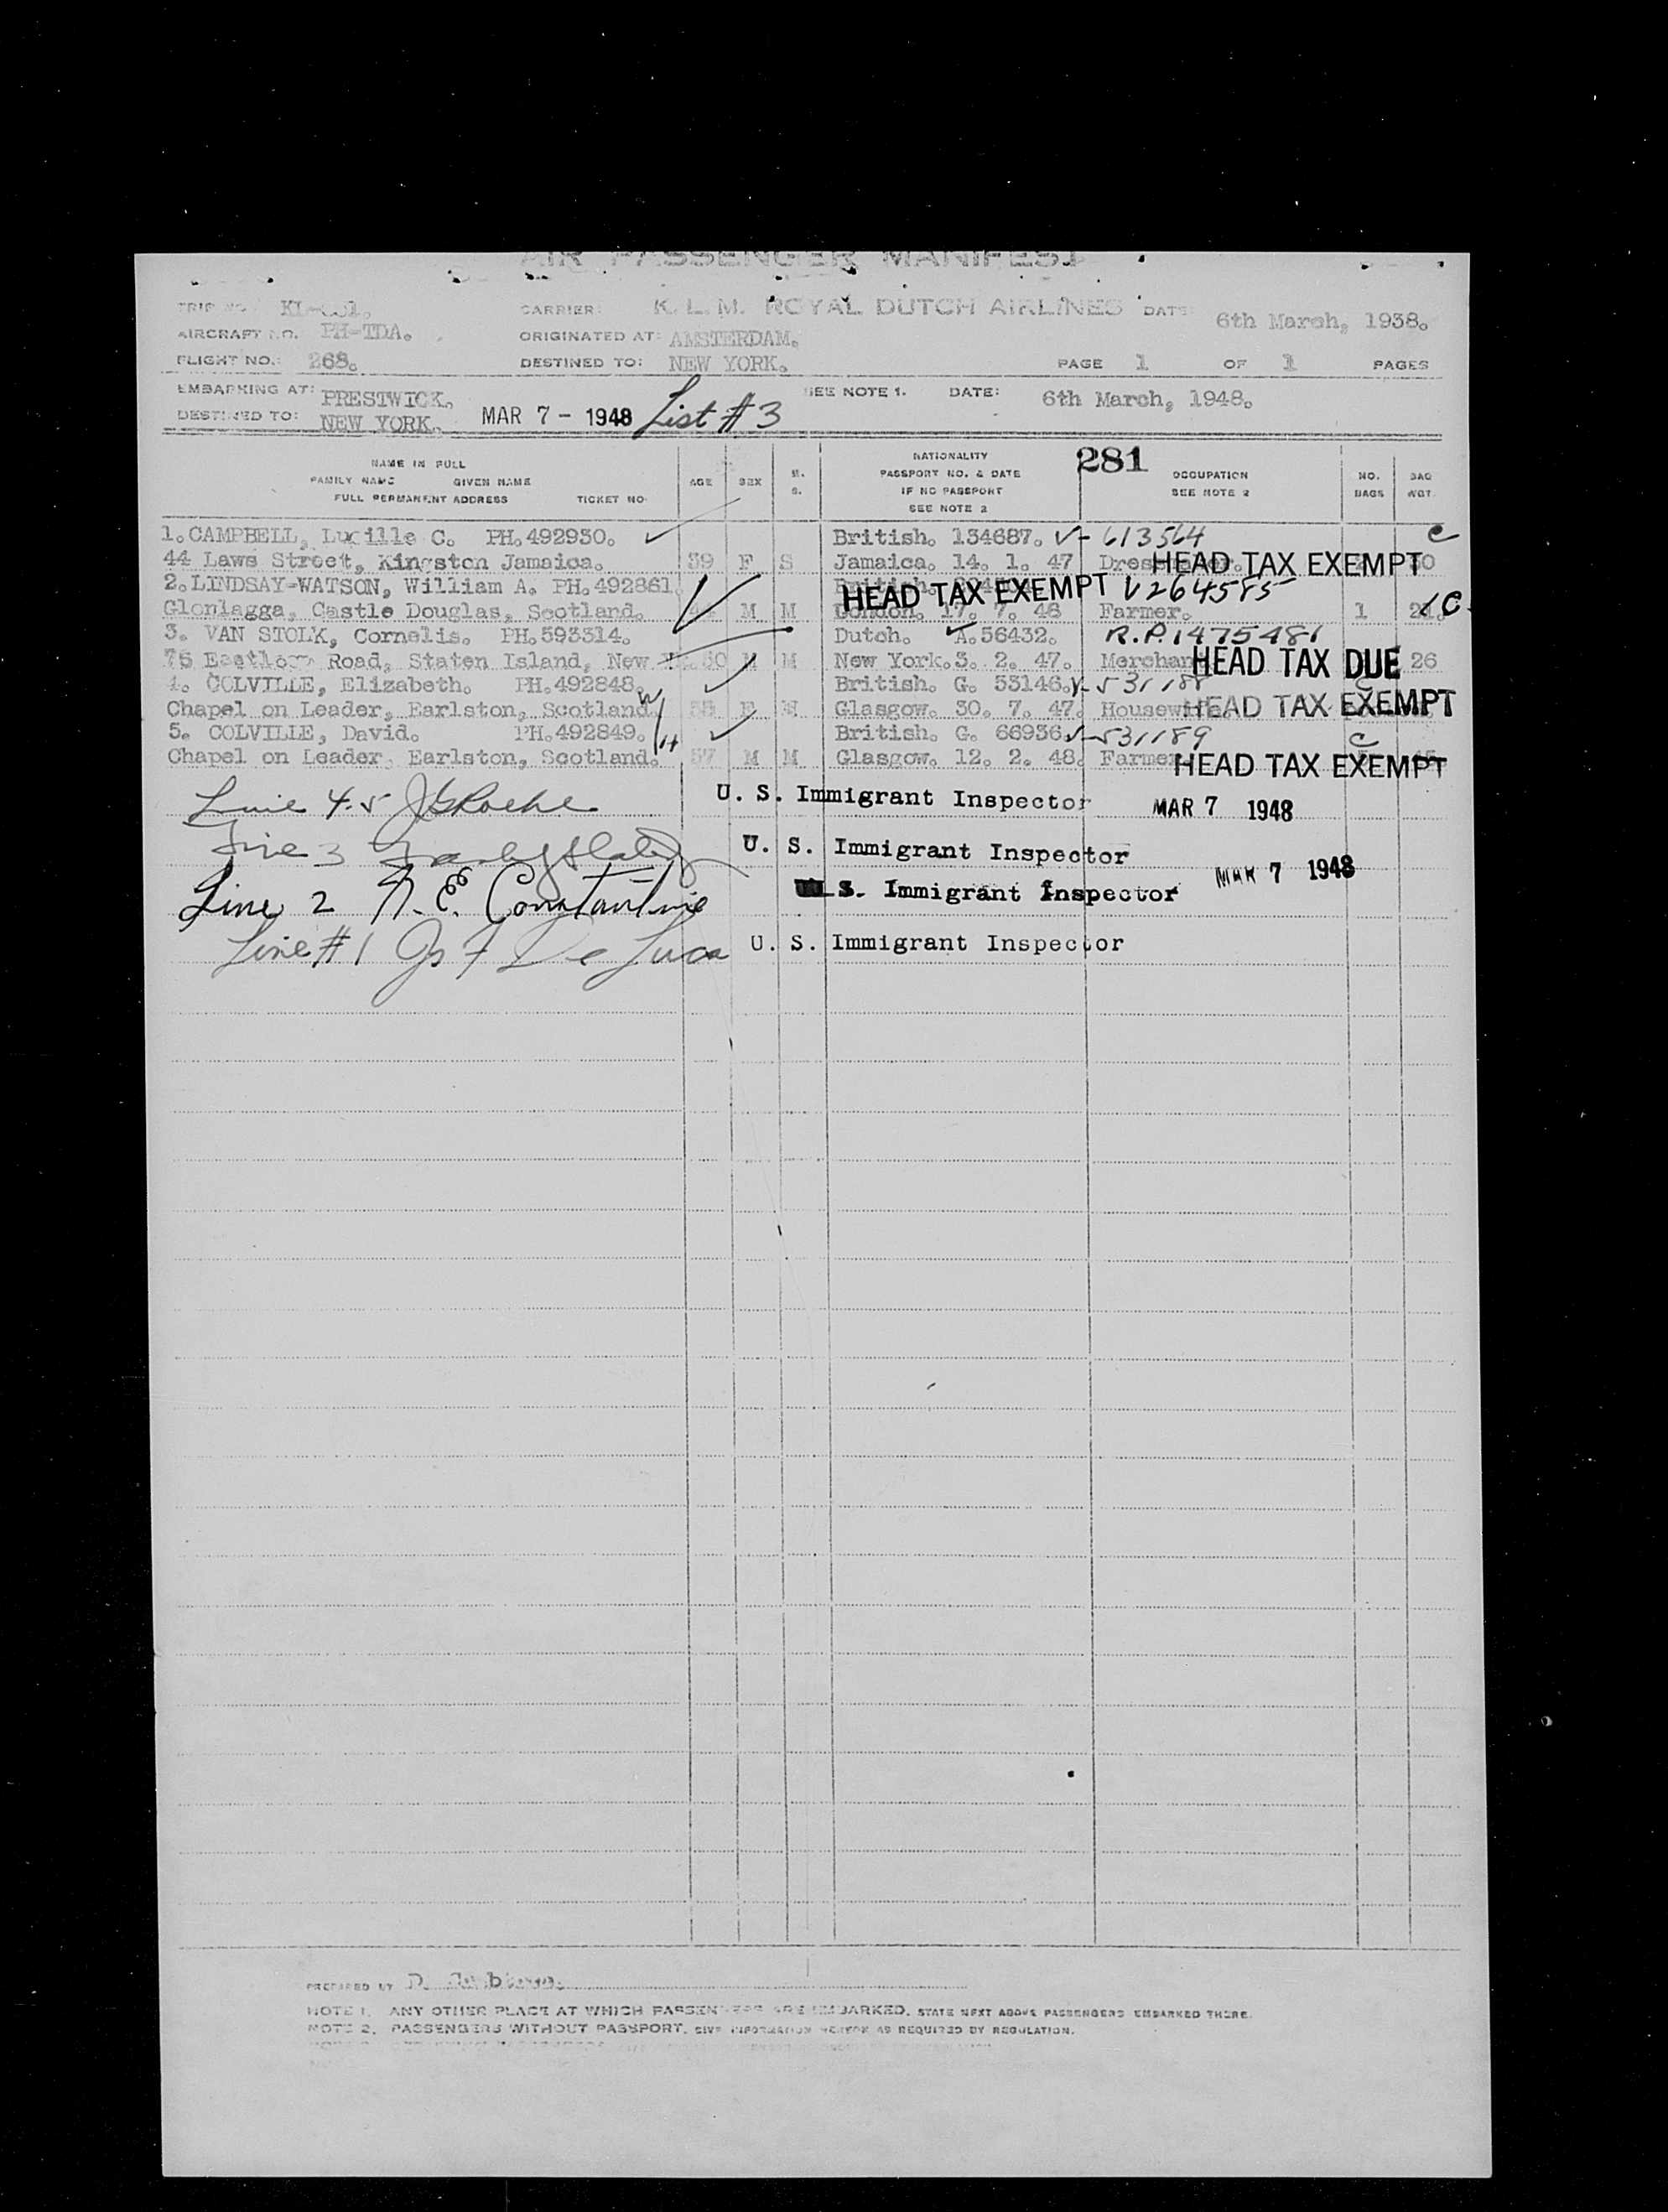 AIR PASSENGER MANIFEST
TRIP NO. CARRIER: K. L. M. ROYAL DUTCH AIRLINES DATE 6th March, 1938.
AIRCRAFT NO. PH-TDA. ORIGINATED AT: AMSTERDAM.
FLIGHT NO. 268. DESTINED TO: NEW YORK. PAGE 1 OF 1 PAGES
EMBARKING AT: PRESTWICK. SEE NOTE 1. DATE: 6th March, 1948.
DESTINED TO: NEW YORK. MAR 7 - 1948 List # 3
281
NAME IN FULL
FAMILY NAME GIVEN NAME
FULL PERMANENT ADDRESS TICKET NO.
AGE SEX M. S.
NATIONALITY
PASSPORT NO. & DATE
IF NO PASSPORT
SEE NOTE 2
OCCUPATION
SEE NOTE 2
NO. BAGS BAG WGT.
1. CAMPBELL, Lucille C. PH. 492930. British. 134687. V- 613564 C
44 Laws Street, Kingston Jamaica. 39 F S Jamaica. 14. 1. 47 HEAD TAX EXEMPT 30
2. LINDSAY-WATSON, William A. PH. 492861. HEAD TAX EXEMPT V 2645585
Glonlagga, Castle Douglas, Scotland. M M London. 17. 7. 46 Farmer. 1 C.
3. VAN STOLK, Cornelis. PH. 593314. Dutch. A. 56432. R.P. 1475481
Road, Staten Island, New M M New York. 3. 2. 47. Merchant HEAD TAX DUE 26
4. COLVILLE, Elizabeth. PH. 492848. W British. G. 53146. V-531188
Chapel on Leader, Earlston, Scotland. F M Glasgow. 30. 7. 47. Housewife. HEAD TAX EXEMPT
5. COLVILLE, David. PH. 492849. H British. G. 66936. V-531189 C
Chapel on Leader, Earlston, Scotland. 57 M M Glasgow. 12. 2. 48. Farmer HEAD TAX EXEMPT
Line 4-5 U. S. Immigrant Inspector MAR 7 1948
Line 3 U. S. Immigrant Inspector
MAR 7 1948
Line 2 N. E. Constantine U. S. Immigrant Inspector
Line # 1 Jos F De Luca U. S. Immigrant Inspector
PREPARED BY D.
NOTE 1. ANY OTHER PLACE AT WHICH PASSENGERS ARE EMBARKED, STATE NEXT ABOVE PASSENGERS EMBARKED THERE.
NOTE 2. PASSENGERS WITHOUT PASSPORT, GIVE INFORMATION HEREON AS REQUIRED BY REGULATION.